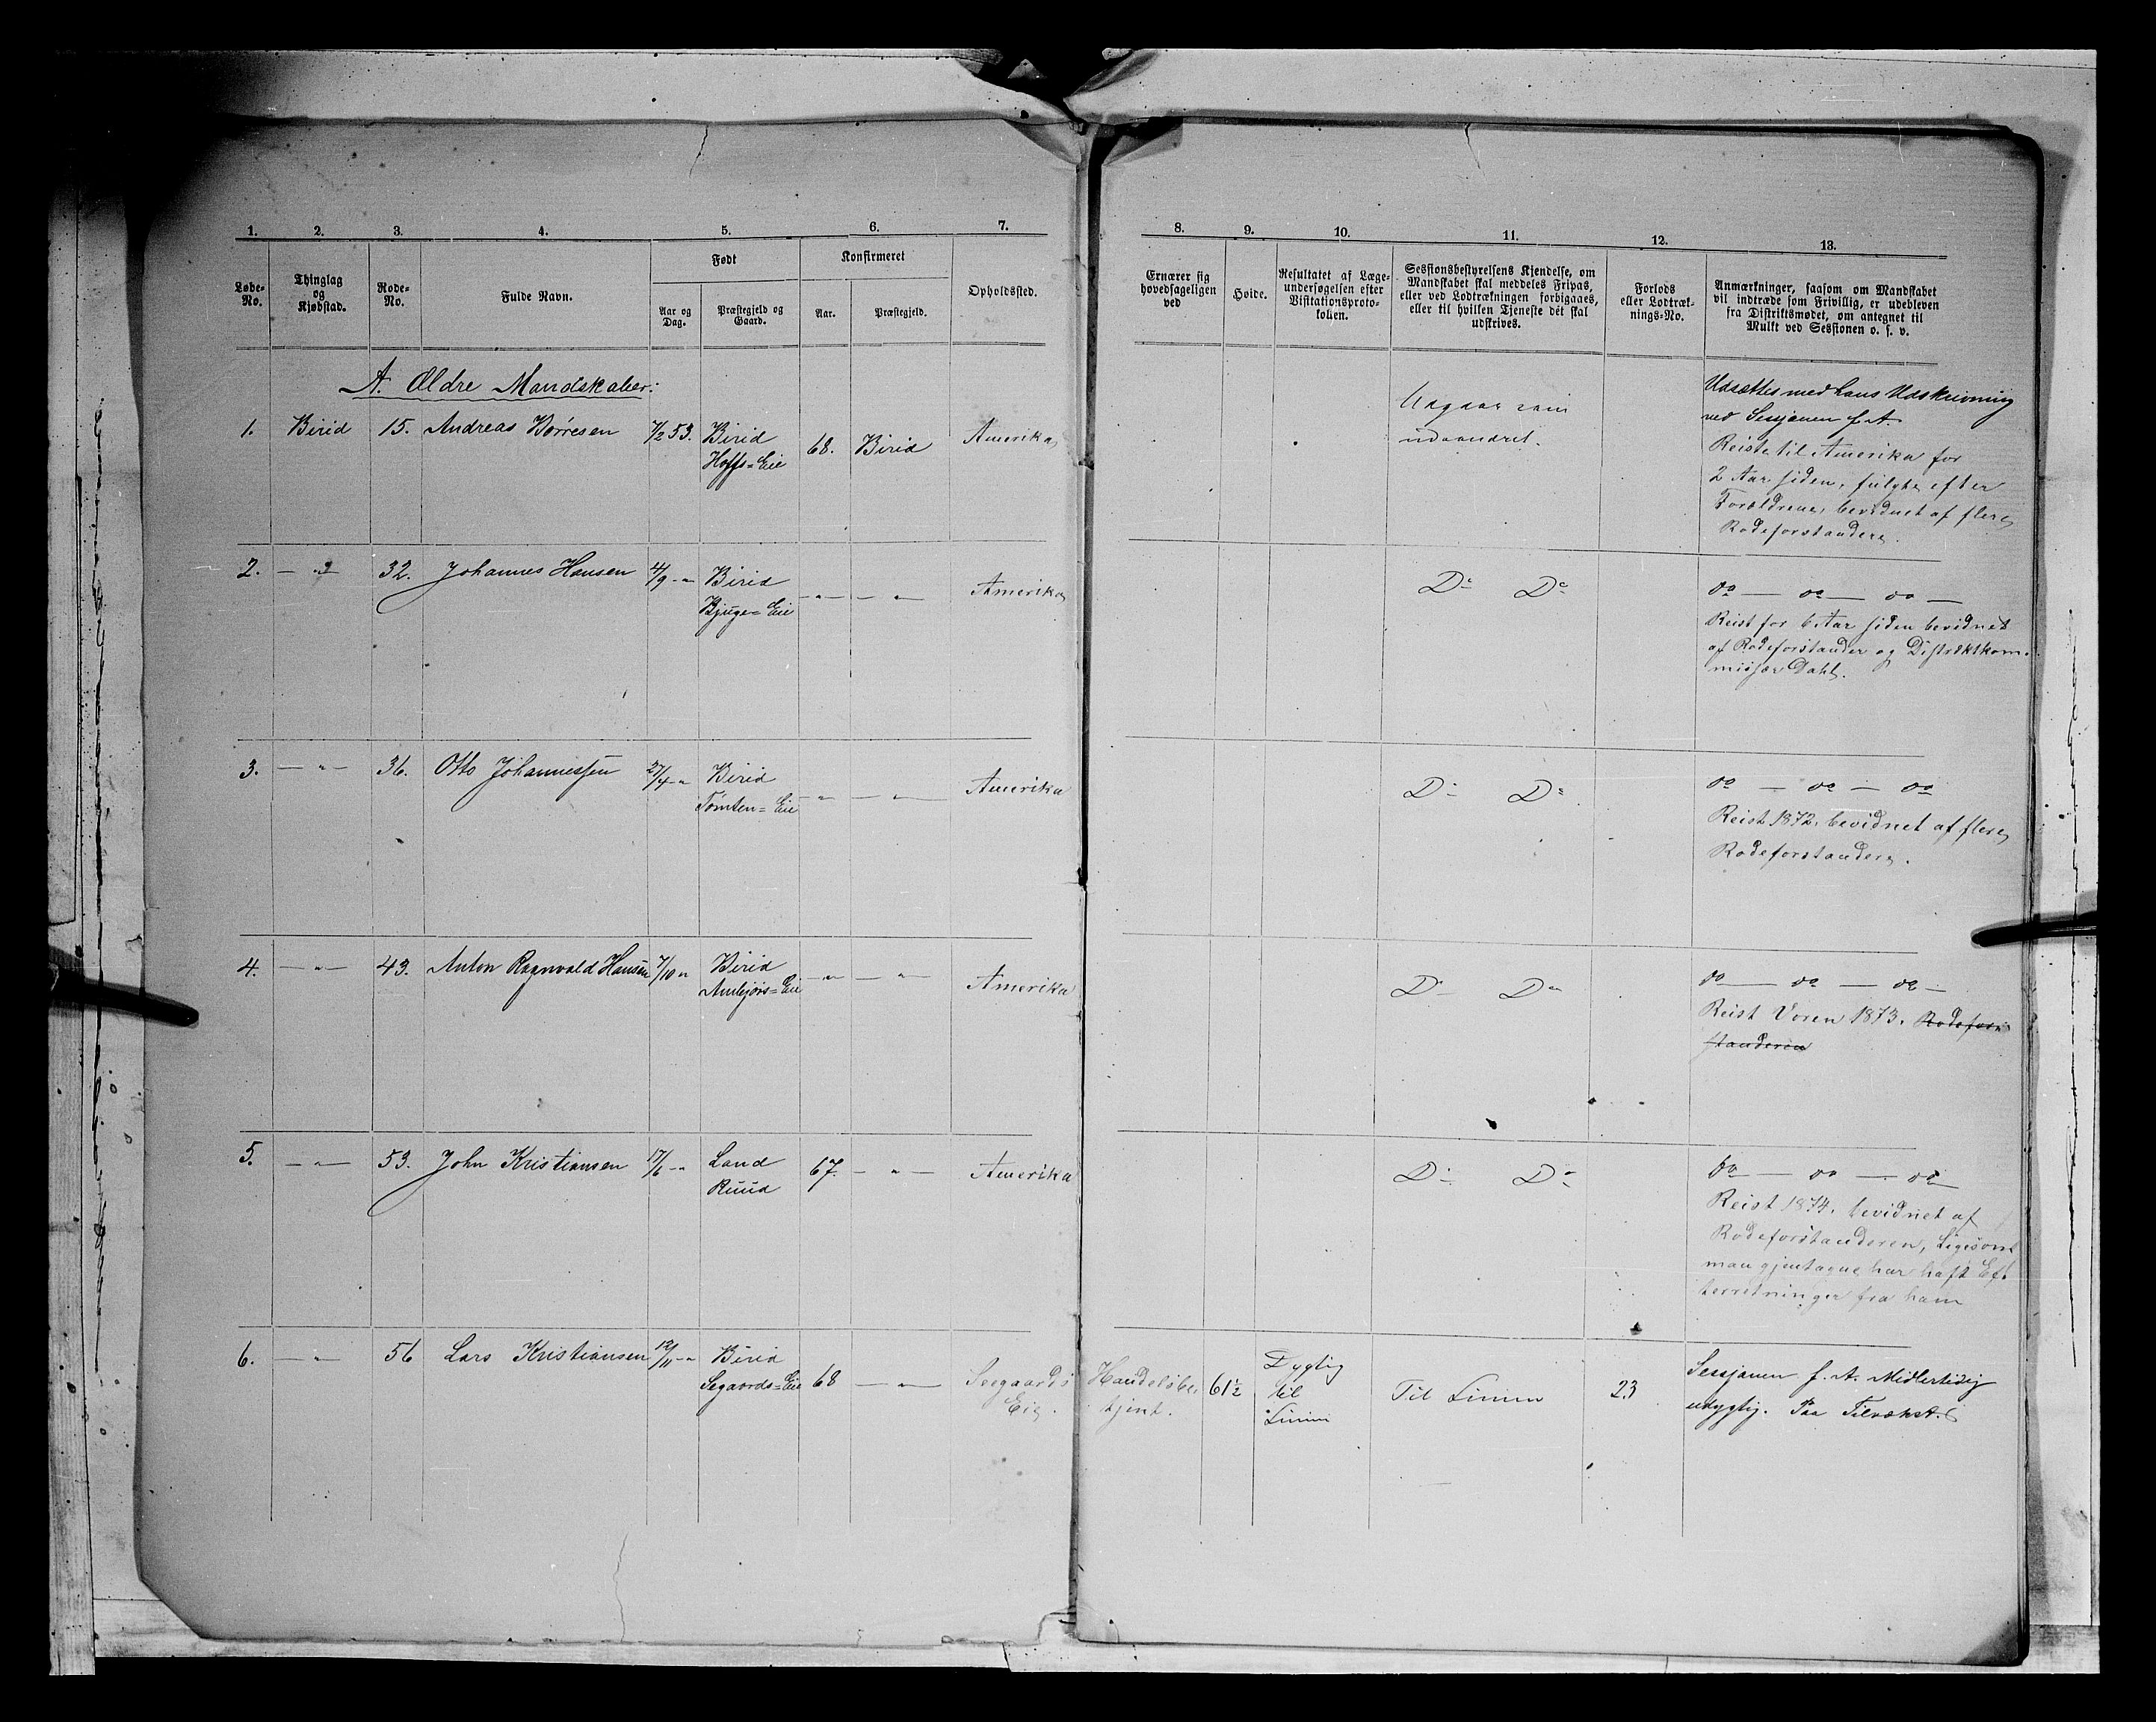 1. 2. 3. 4. 5. 6. 7. 8. 9. 10. 11. 12. 13.
Løbe-No.
Thinglag og Kjøbstad.
Rode-No.
Fulde Navn.
Født
Aar og Dag.
Præstegjeld og Gaard.
Konfirmeret
Aar.
Præstegjeld.
Opholdssted.
Ernærer sig hovedsageligen ved
Høide.
Resultatet af Læge-undersøgelsen efter Visitationsproto-kollen.
Sessionsbestyrelsens Kjendelse, om Mandskabet skal meddeles Fripas, eller ved Lodtrækningen forbigaaes, eller til hvilken Tjeneste det skal udskrives.
Forlods eller Lodtræk-nings-No.
Anmærkninger, saasom om Mandskabet vil indtræde som Frivillig, er udebleven fra Distriktsmødet, om antegnet til Mulkt ved Sessionen o. s. v.
A. Ældre Mandskaber:
1. Birid 15. Andreas Børresen 7/2 53. Birid 68. Birid Amerika
Hoffs=Eie
Udgaar som
udvandret.
Udsættes med hans Udskrivning
ved Sessjonen f. A.
Reiste til Amerika for
2 Aar siden, fulgte efter
Forældrene, bevidnet af flere
Rodeforstandere.
2. — " — 32. Johannes Hansen 4/9 - " Birid — " — — " — Amerika
Bjuge=Eie
Do Do
do — do — do —
Reist for 6 Aar siden bevidnet
af Rodeforstander og Distriktskom-
missær Dahl.
3. — " — 36. Otto Johannessen 27/4 - " Birid — " — — " — Amerika
Tømten=Eie
Do Do
do — do — do
Reist 1872. bevidnet af flere
Rodeforstandere.
4. — " — 43. Anton Ragnvald Hansen 7/10 " Birid — " — — " — Amerika
Do Do
do — do — do —
Reist Voren 1873. Rodefor-
standeren
5. — " — 53. John Kristiansen 17/6 - " Land 67. — " — Amerika
Ruud
Do Do
do — do — do
Reist 1874. bevidnet af
Rodeforstanderen, Ligesom
man gjentagne har haft Ef-
terretninger fra ham
6. — " — 56 Lars Kristiansen 12/11 - " Birid 68 — " — Seegaards
Segaards=Eie
Eie.
Handelsbe-
tjent.
61½
Dygtig
til
Linien
Til Linien
23
Sessjonen f. A. Midlertidig
udygtig. Paa Tilvækst.